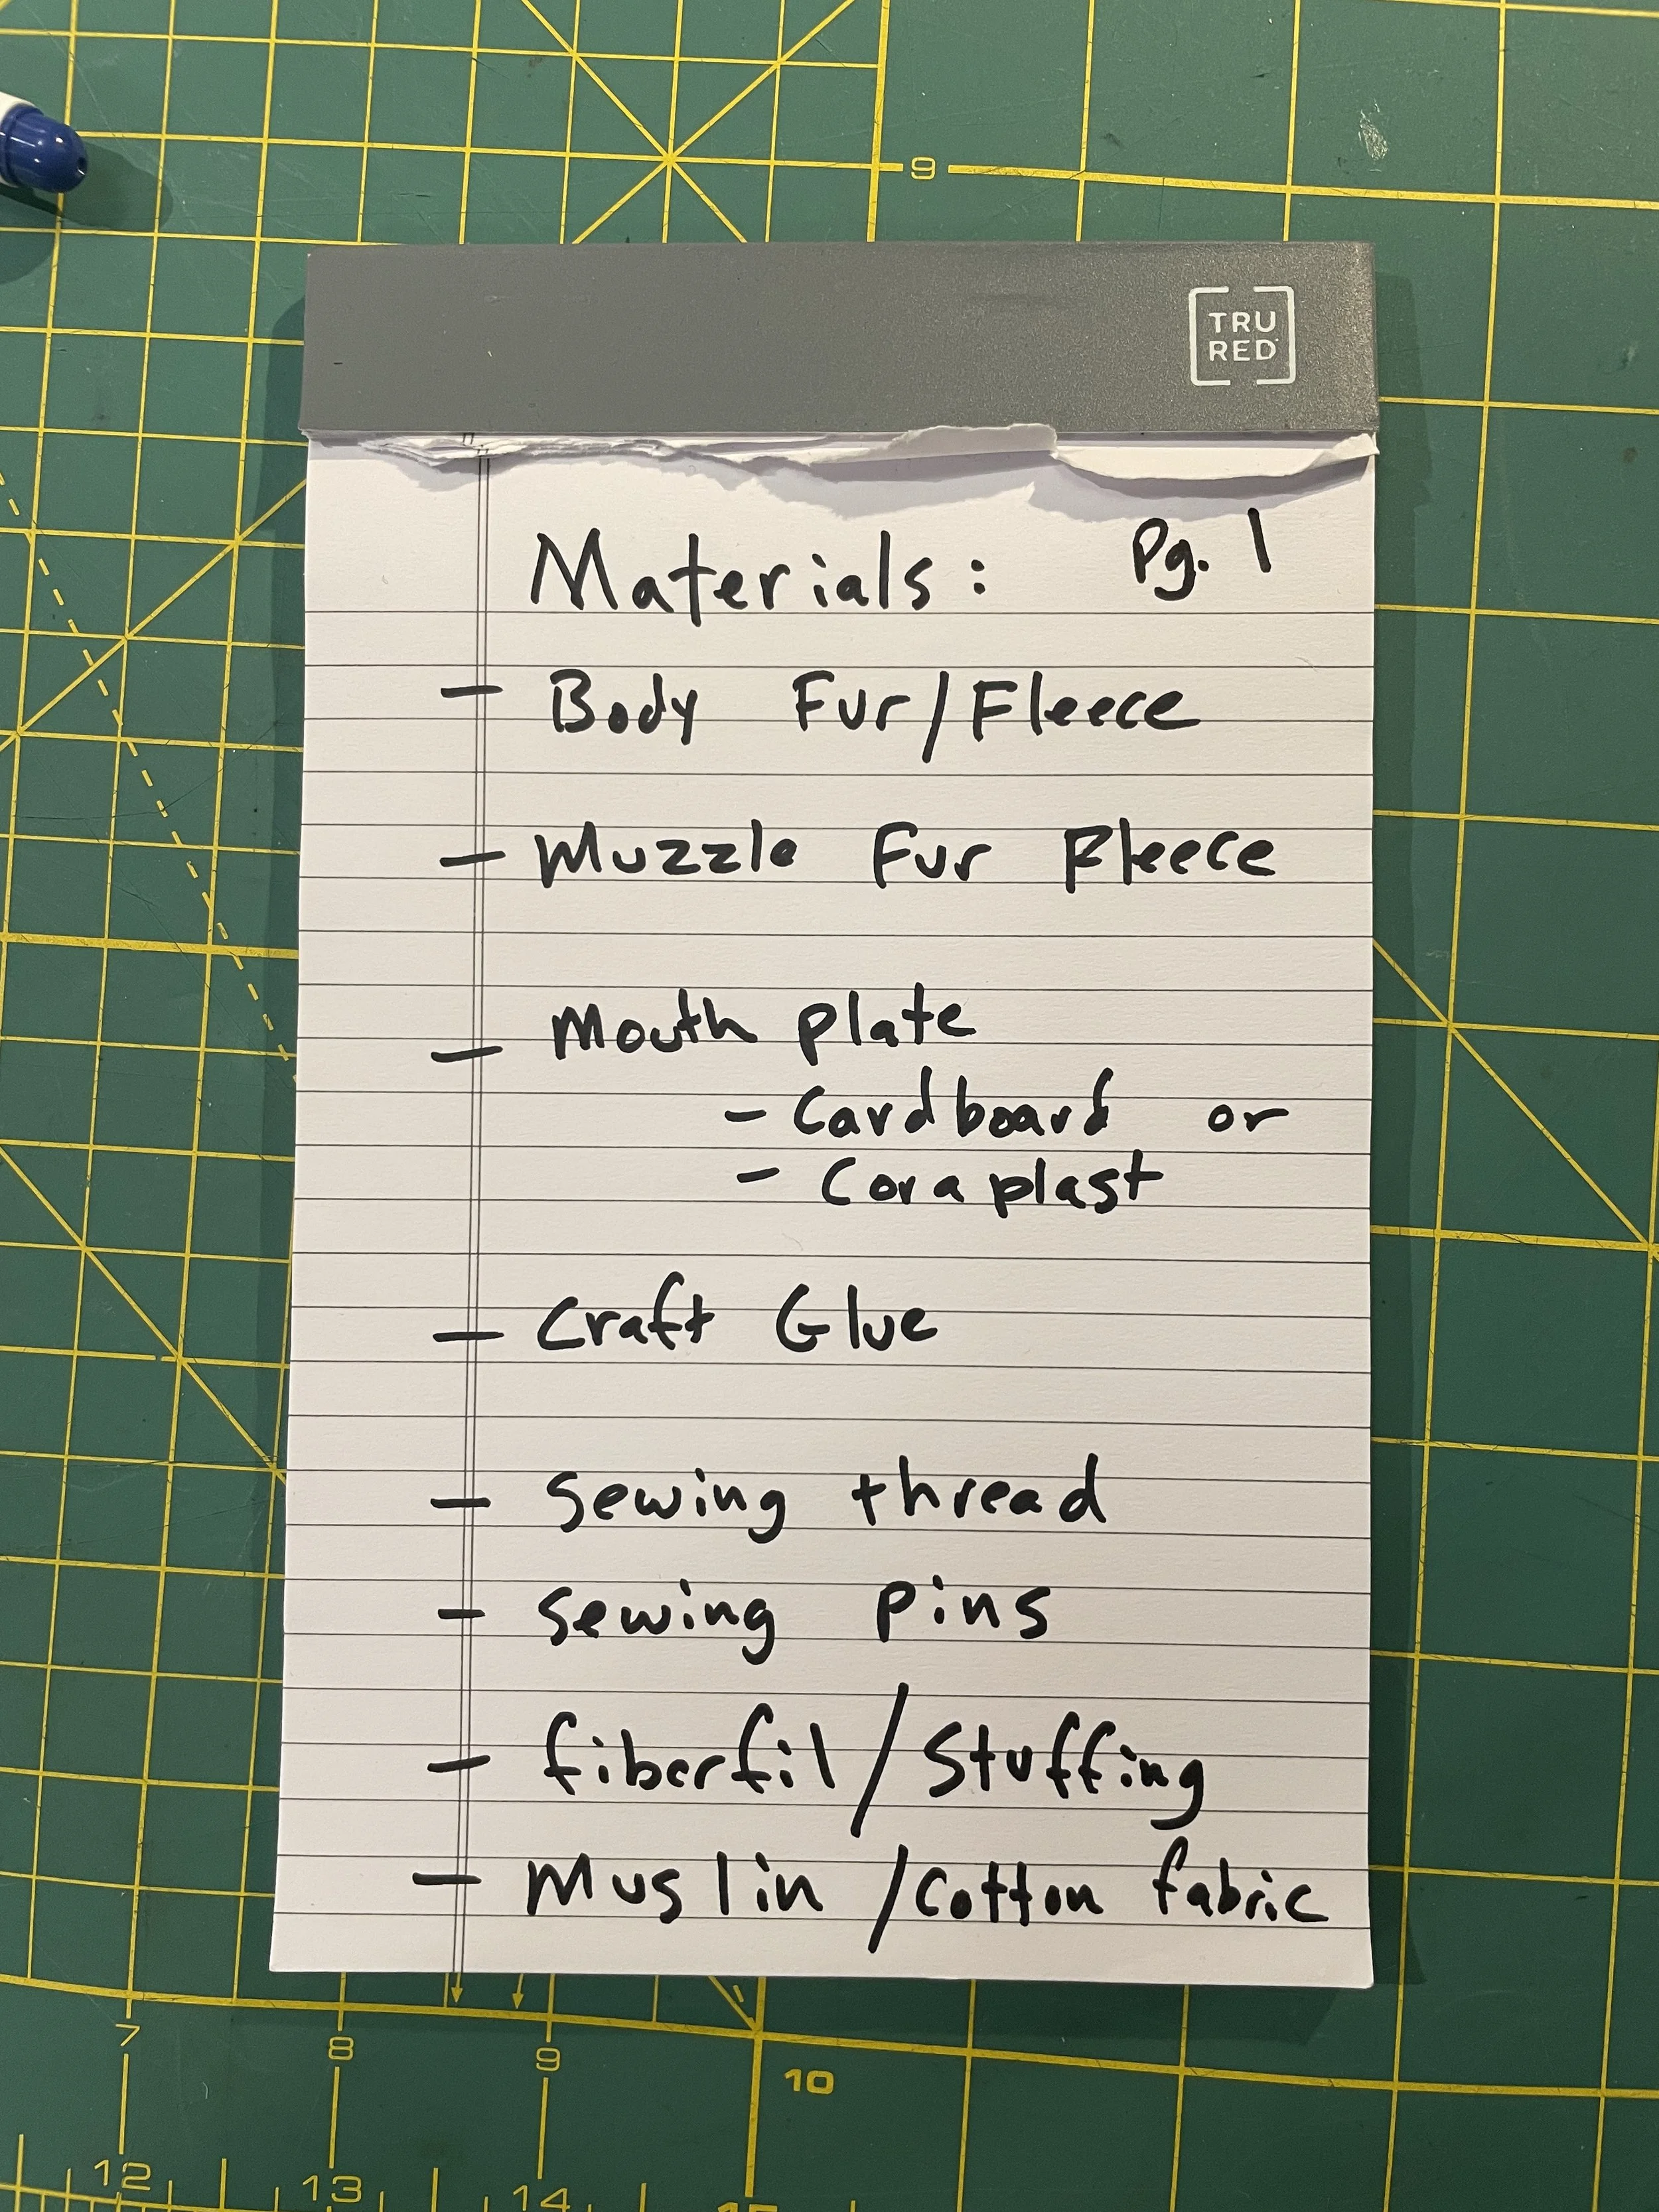 9
TRU
RED
Materials: Pg. 1
- Body Fur/Fleece
- Muzzle Fur Fleece
- Mouth plate
- Cardboard or
- Coraplast
- Craft Glue
- Sewing thread
- Sewing pins
- fiberfil/Stuffing
- Muslin/Cotton fabric
7 8 9 10
12 13 14 15